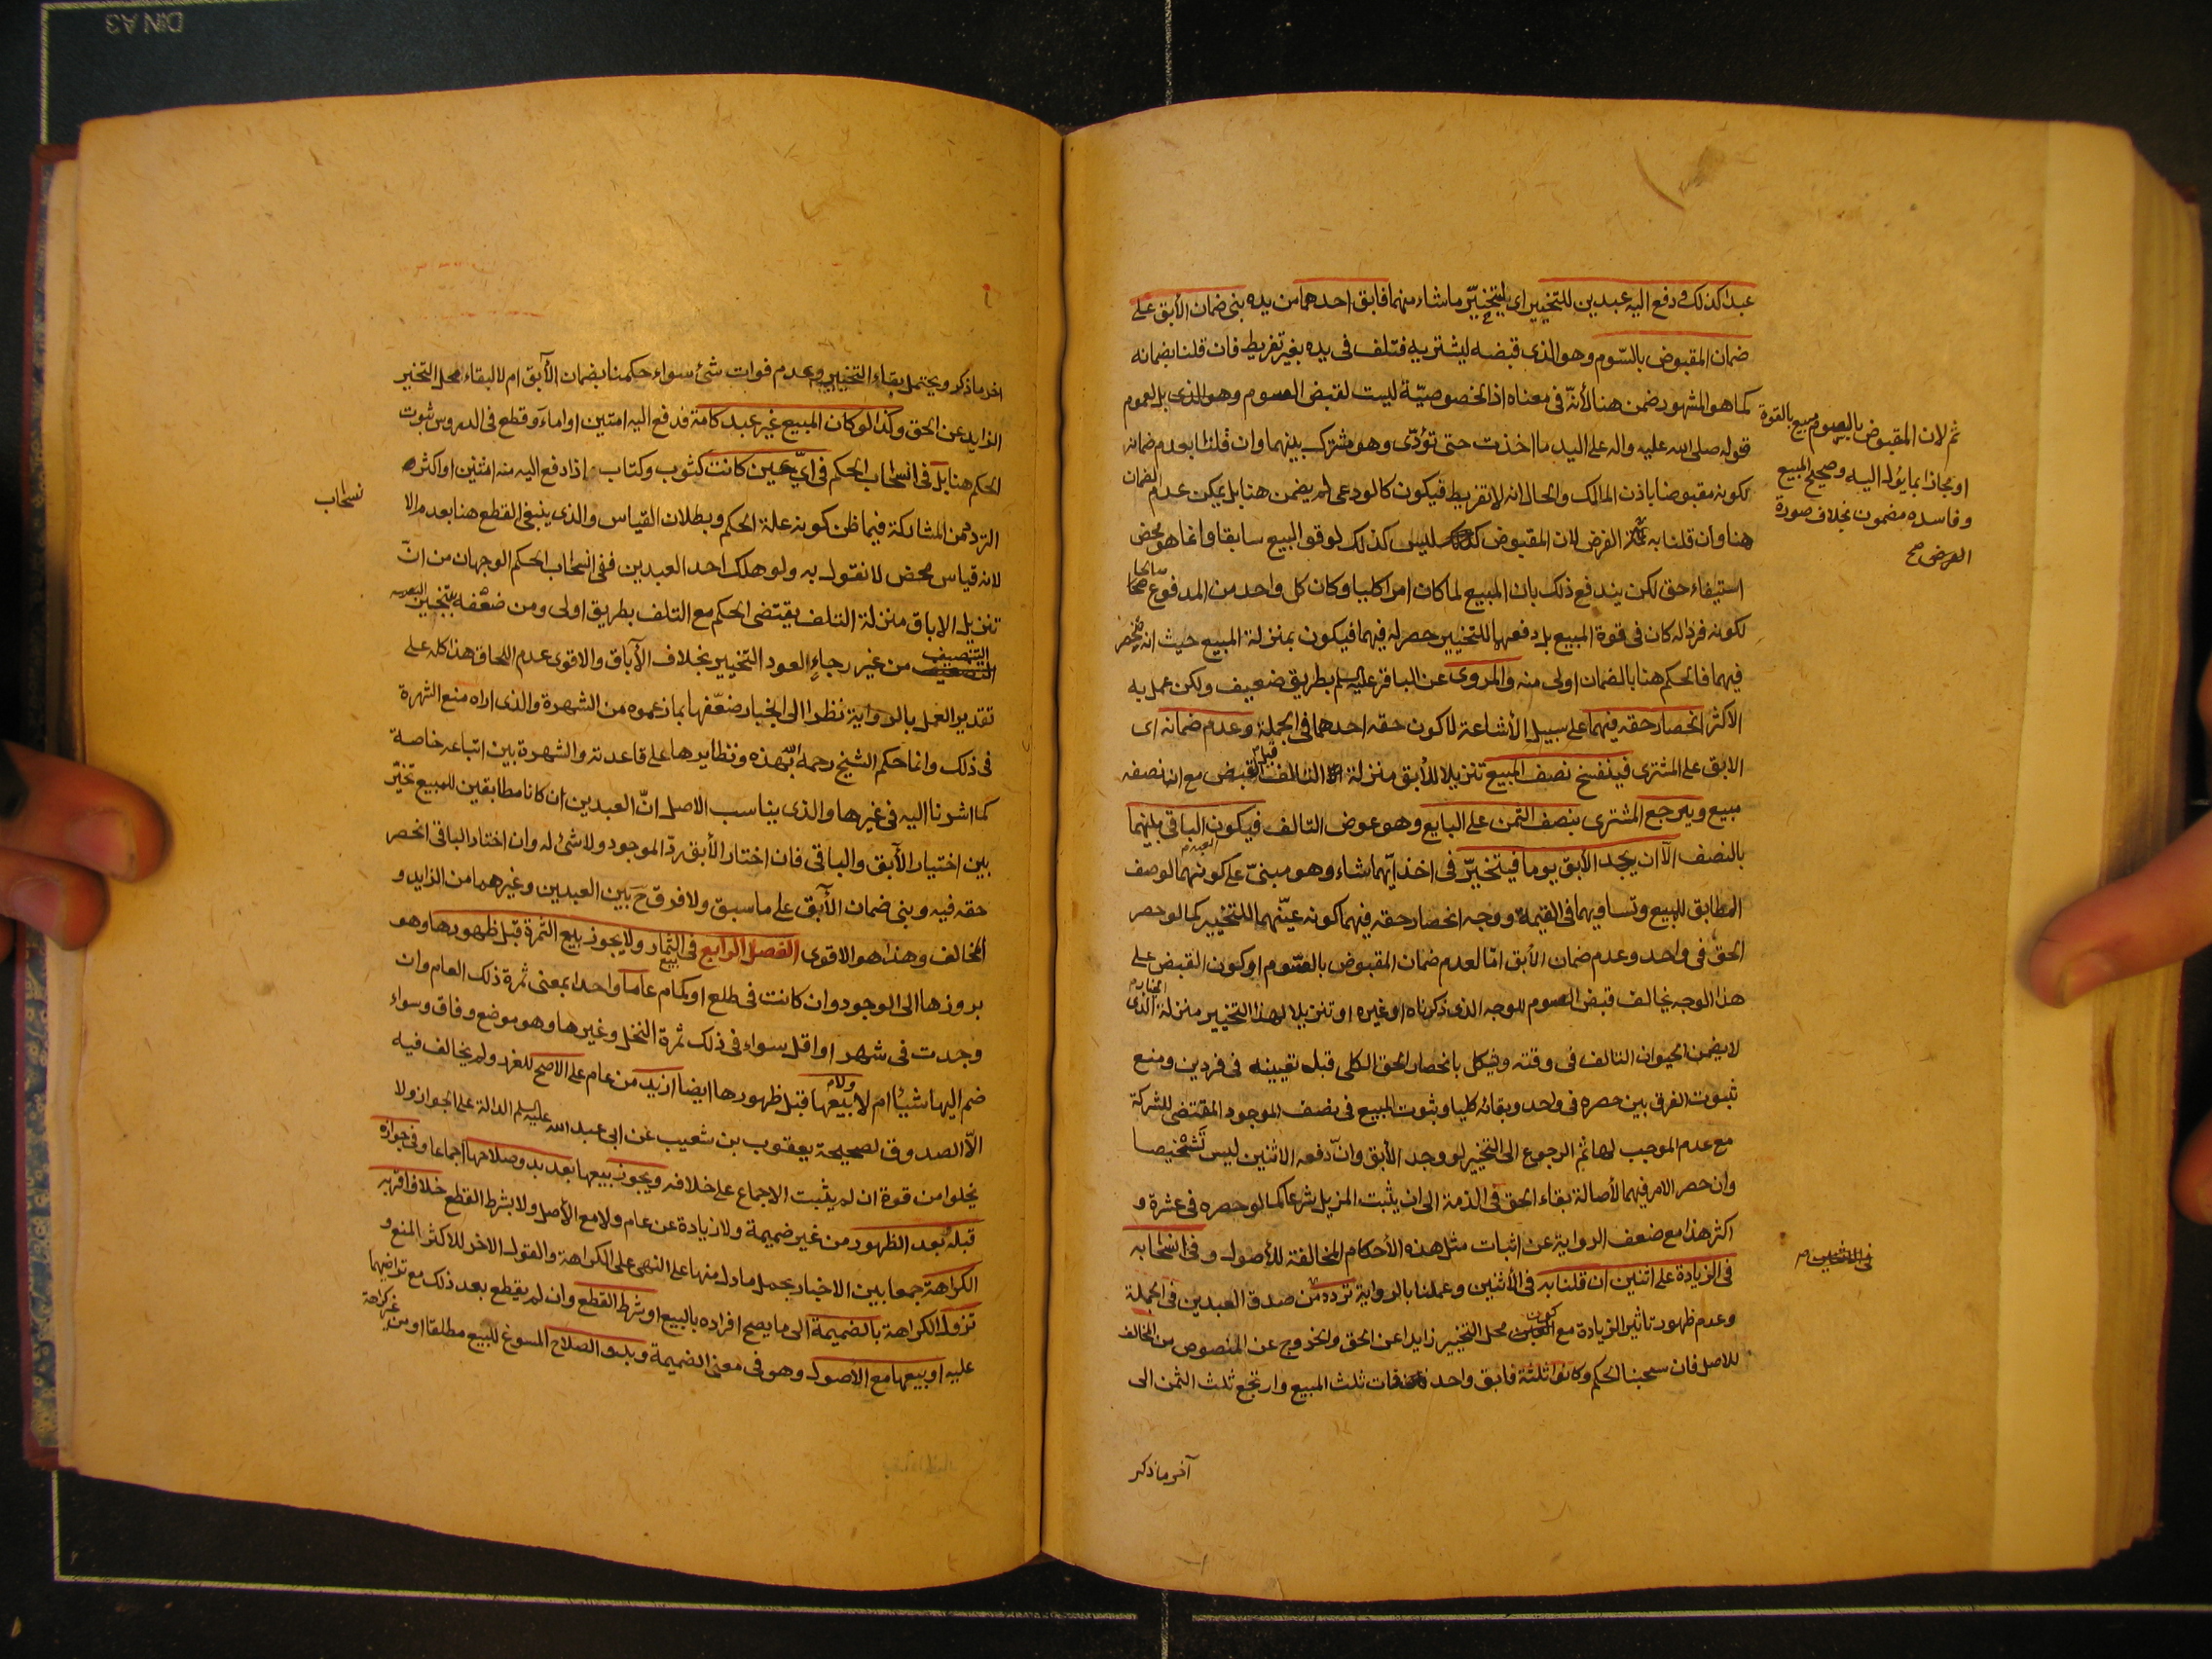 عبدا كذلك ودفع اليه عبدين للتخيير اى ليتخيّر ما شاء منهما فابق احدهما من يده بنى ضمان الأبق على
ضمان المقبوض بالسّوم وهو الذى قبضه ليشتريه فتلف فى يده بغير تفريط فان قلنا بضمانه
كما هو المشهور ضمن هنا لأنّه فى معناه اذ الخصوصيّة ليست لقبض السوم وهو الذى بل لعموم
قوله صلى الله عليه واله على اليد ما اخذت حتى تؤدّى وهو مشترك بينهما وان قلنا بعدم ضمانه
لكونه مقبوضا باذن المالك والحال انه لا تفريط فيكون كالودعى لم يضمن هنا بل يمكن عدم الضمان
هنا وان قلنا به ثمّ الفرض لان المقبوض ليس كذلك لوقوع البيع سابقا وانما هو محض
استيفاء حق لكن يندفع ذلك بان المبيع لما كان امرا كليا وكان كل واحد من المدفوع صالحا
لكونه فردا له كان فى قوة المبيع بل دفعهما للتخيير حصر له فيهما فيكون بمنزلة المبيع حيث انه منحصر
فيهما فالحكم هنا بالضمان اولى منه والمروى عن الباقر عليه السلم بطريق ضعيف ولكن عمل به
الاكثر انحصار حقه فيهما على سبيل الأشاعة لا كون حقه احدهما فى الجملة وعدم ضمانه اى
الابق على المشترى فينفسخ نصف المبيع تنزيلا للأبق منزلة التالف قبل القبض مع ان نصفه
مبيع ويرجع المشترى بنصف الثمن على البايع وهو عوض التالف فيكون الباقى بينهما
بالنصف الّا ان يجد الأبق يوما فيتخيّر فى اخذ ايّهما شاء وهو مبنىّ على كونهما العبدين بالوصف
المطابق للمبيع وتساويهما فى القيمة ووجه انحصار حقه فيهما كونه عيّنهما للتخيير كما لو حصر
الحق فى واحد وعدم ضمان الأبق امّا لعدم ضمان المقبوض بالسّوم او كون القبض على
هذا الوجه يخالف قبض السوم للوجه الذى ذكرناه او غيره او تنزيلا لهذا التخيير منزلة الخيار الذى
لا يضمن الحيوان التالف فى وقته ويشكل بانحصار الحق الكلى قبل تعيينه فى فردين ومنع
ثبوت الفرق بين حصره فى واحد وبقائه كليا وثبوت المبيع فى نصف الموجود المقتضى للشركة
مع عدم الموجب لها ثم الرجوع الى التخيير لو وجد الأبق وانّ دفعه الاثنين ليس تشخيصا
وان حصر الامر فيهما لأصالة بقاء الحق فى الذمة الى ان يثبت المزيل شرعا كما لو حصره فى عشرة و
اكثر هذا مع ضعف الرواية عن اثبات مثل هذه الأحكام المخالفة للأصول وفى انسحابه
فى الزيادة على اثنين ان قلنا به فى الأثنين وعملنا بالرواية تردد من صدق العبدين فى الجملة
وعدم ظهور تاثير الزيادة مع كون محل التخيير زايدا عن الحق والخروج عن المنصوص من المخالف
للاصل فان سحبنا الحكم وكانوا ثلثة فابق واحد فات ثلث المبيع وارتجع ثلث الثمن الى
آخر ما ذكر
ثم لان المقبوض بالسوم مبيع بالقوة
او مجازا بما يؤل اليه وصحيح المبيع
وفاسده مضمون بخلاف صورة
الفرض صح
اخر ما ذكر ويحتمل بقاء التخيير وعدم فوات شئ سواء حكمنا بضمان الآبق ام لا لبقاء محل التخير
الزايد عن الحق وكذا لو كان المبيع غير عبد كامة فدفع اليه امتين او اماء وقطع فى الدروس ثبوت
الحكم هنا بل فى انسحاب الحكم فى اىّ عين كانت كثوب وكتاب اذا دفع اليه منه اثنين او اكثر
التردد من المشاركة فيما ظن كونه علة الحكم وبطلان القياس والذى ينبغى القطع هنا بعدم الا
نسحاب
لانه قياس محض لا نقول به ولو هلك احد العبدين ففى انسحاب الحكم الوجهان من انّ
تنزيل الاباق منزلة التلف يقتضى الحكم مع التلف بطريق اولى ومن ضعفه بتنجيز
التنصيف من غير رجاء لعود التخيير بخلاف الأباق والاقوى عدم اللحاق هذا كله على
تقدير العمل بالرواية نظرا الى انجبار ضعّفها بما زعموه من الشهرة والذى اراه منع الشهرة
فى ذلك وانما حكم الشيخ رحمه الله بهذه ونظايرها على قاعدته والشهرة بين اتباعه خاصة
كما اشرنا اليه فى غيرها والذى يناسب الاصل انّ العبدين ان كانا مطابقين للمبيع تخيّر
بين اختيار الأبق والباقى فان اختار الأبق رد الموجود ولا شئ له وان اختار الباقى انحصر
حقه فيه وبنى ضمان الآبق على ما سبق ولا فرق ح بين العبدين وغيرهما من الزايد و
المخالف وهذا هو الاقوى الفصل الرابع فى بيع الثمار ولا يجوز بيع الثمرة قبل ظهورها وهو
بروزها الى الوجود وان كانت فى طلع او كمام عاما واحدا بمعنى ثمرة ذلك العام وان
وجدت فى شهر او اقل سواء فى ذلك ثمرة النخل وغيرها وهو موضع وفاق وسواء
ضم اليها شيئا ام لا ولا بيعها قبل ظهورها ايضا ازيد من عام على الاصح للغرر ولم يخالف فيه
الّا الصدوق لصحيحة يعقوب بن شعيب عن ابى عبد الله عليه السلم الدالة على الجواز ولا
يخلوا من قوة ان لم يثبت الاجماع على خلافه ويجوز بيعها بعد بدو صلاحها اجماعا وفى جوازه
قبله بعد الظهور من غير ضميمة ولا زيادة عن عام ولا مع الأصل ولا بشرط القطع خلاف اقربه
الكراهة جمعا بين الاخبار بحمل ما دل منها على النهى على الكراهة والقول الاخر للاكثر المنع و
تزول الكراهة بالضميمة الى ما يصح افراده بالبيع او شرط القطع وان لم يقطع بعد ذلك مع تراضيهما
عليه او بيعها مع الأصول وهو فى معنى الضميمة وبدو الصلاح المسوغ للبيع مطلقا او من غير كراهة